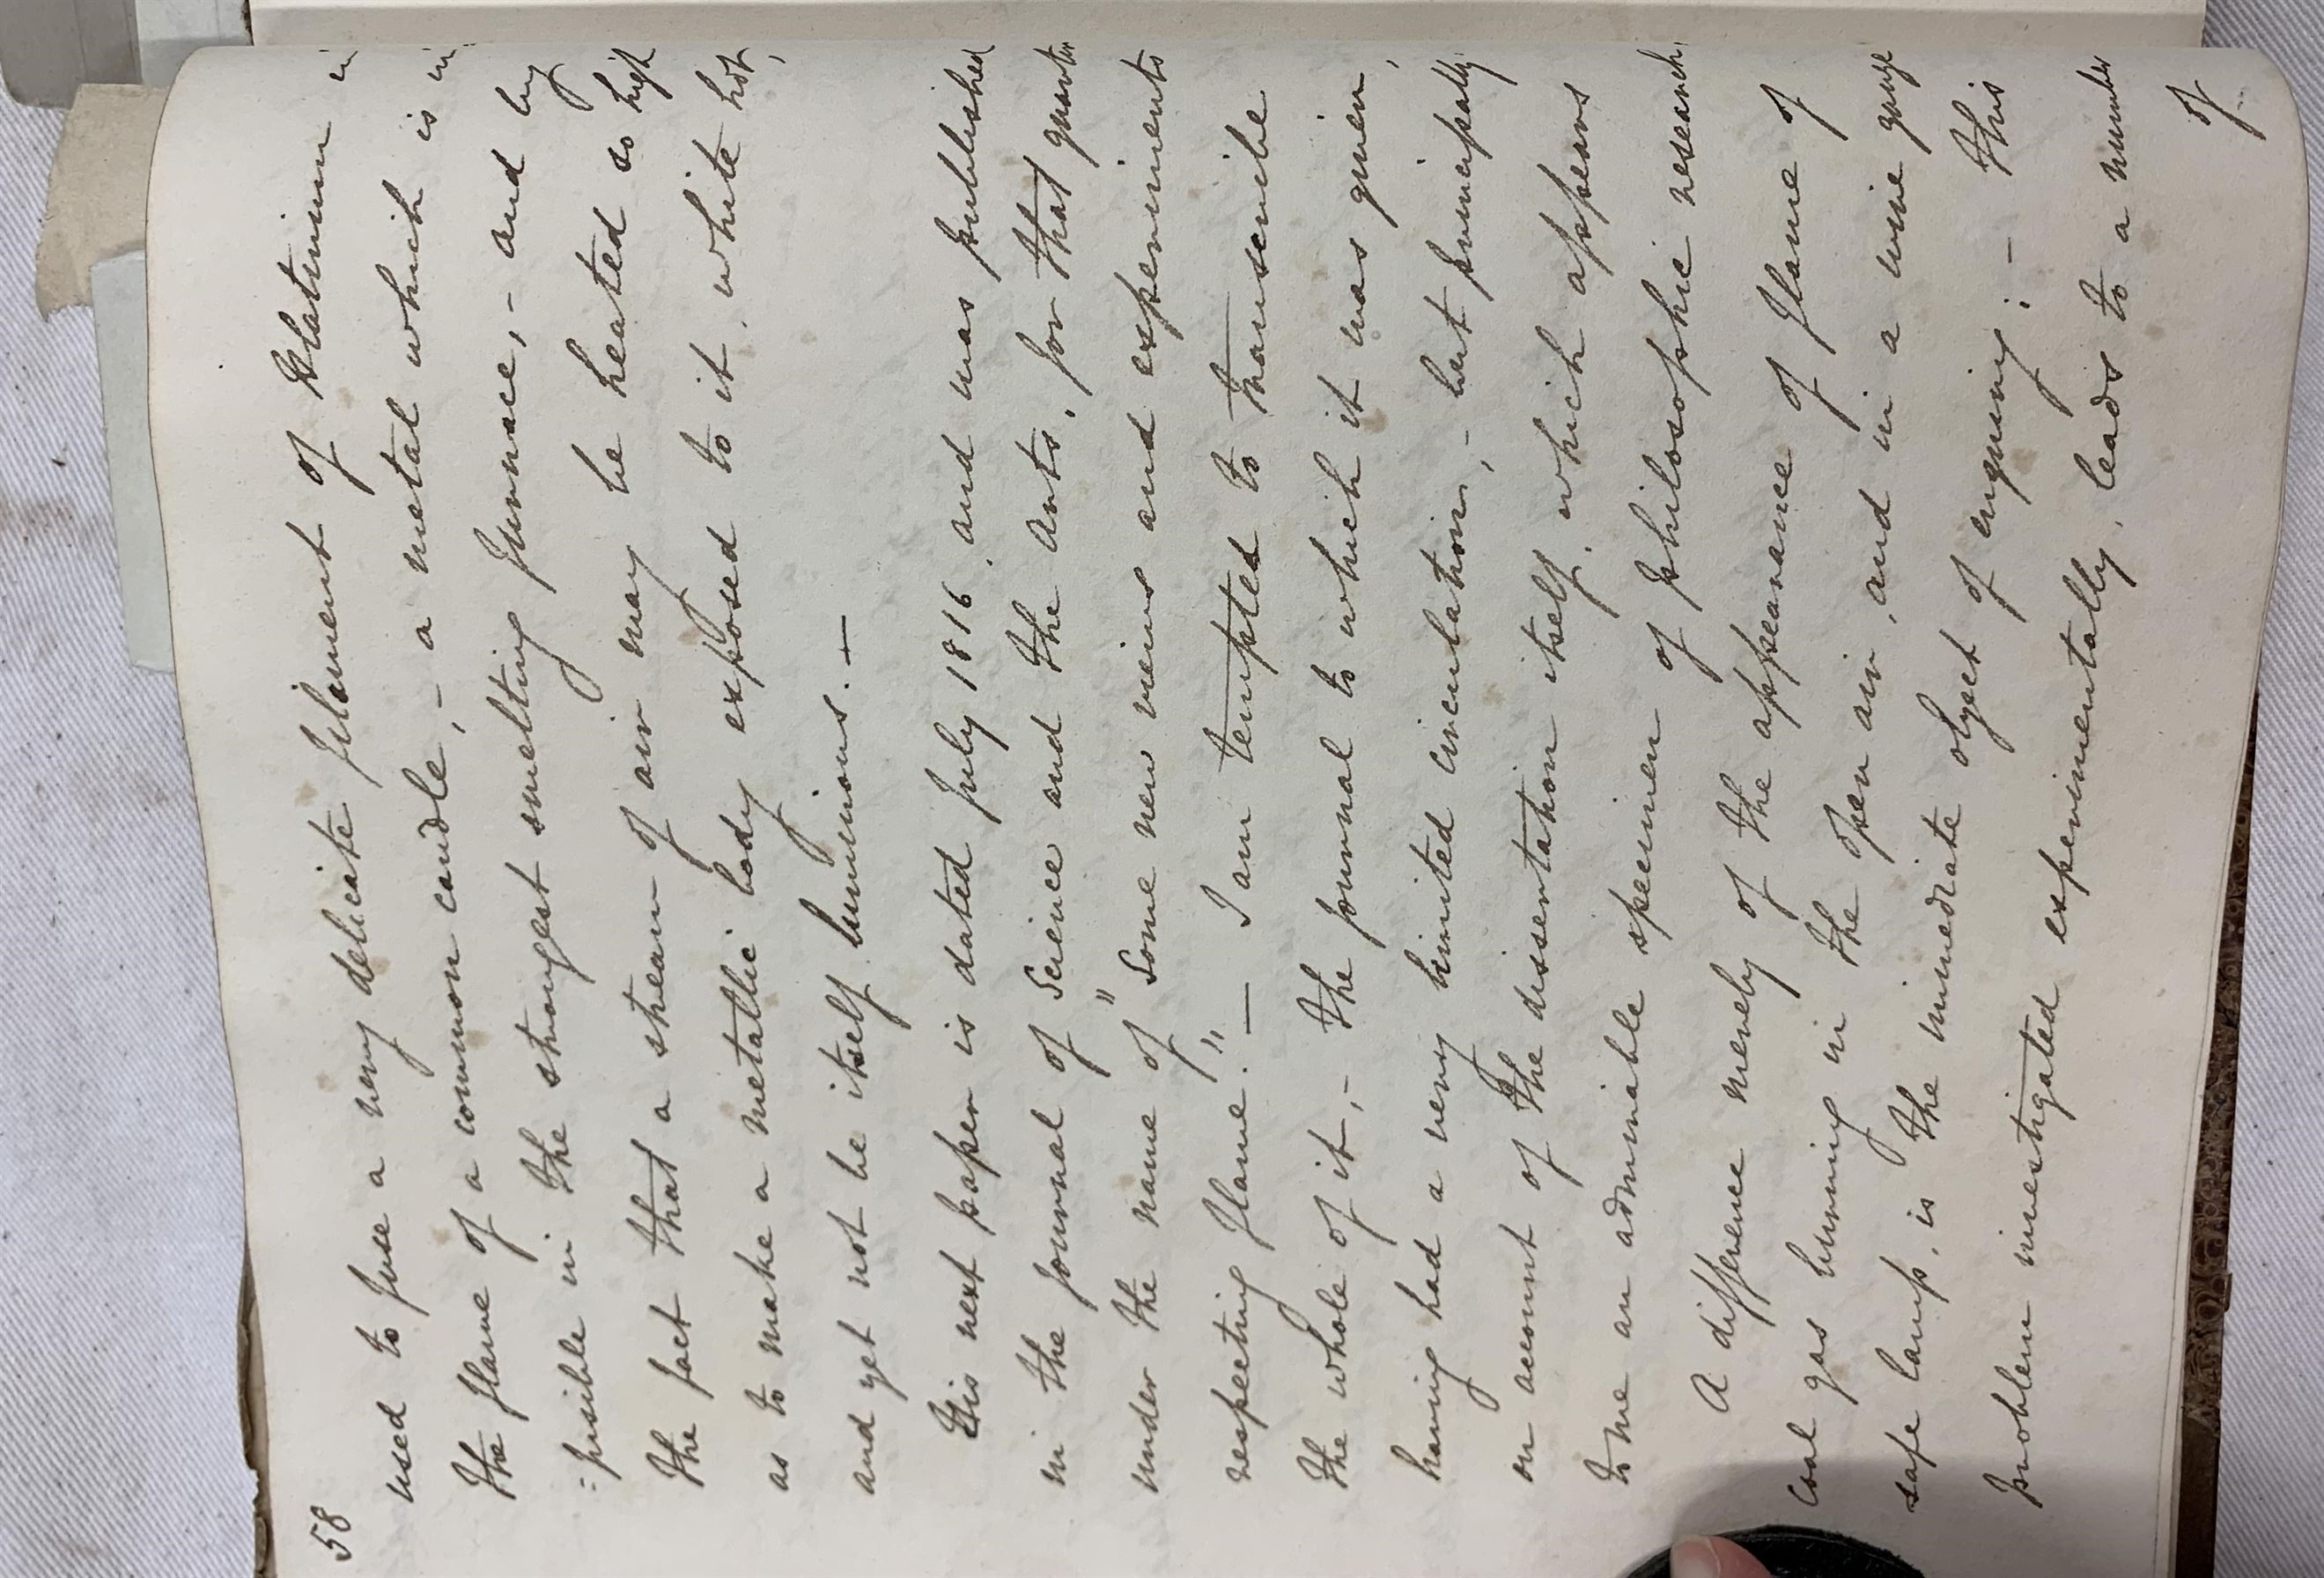 58
used to fuse a very delicate filament of platinum in
the flame of a common candle, - a metal which is in
:fusible in the strongest smelting furnace, - and by
the fact that a stream of air may be heated so high
as to make a metallic body exposed to it, white hot,
and yet not be itself luminous. —
His next paper is dated July 1816, and was published
in the journal of Science and the Arts, for that quarter
under the name of "Some new views and experiments
respecting Flame." — I am tempted to transcribe
the whole of it, - the journal to which it was given,
having had a very limited circulation, - but principally
on account of the dissertation itself, which appears
to me an admirable specimen of philosophic research.
A difference merely of the appearance of flame of
coal gas burning in the open air, and in a wire gauze
safe lamp, is the immediate object of enquiry; - this
problem investigated experimentally, leads to a number
of